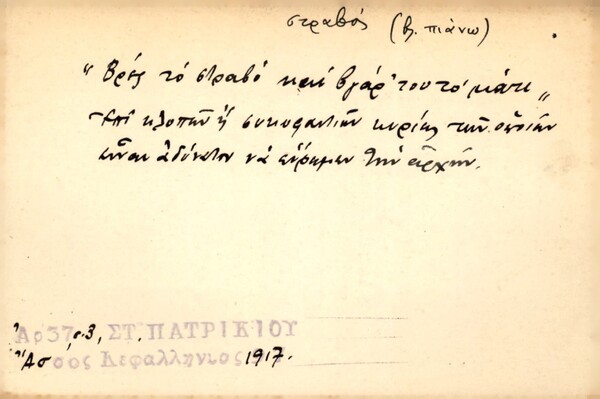 στραβός (βλ. πιάνω)
"Βρές τό στραβό καί βγάρ' του τό μάτι„
Ἐπί κλοπῶν ἤ συκοφαντιῶν κυρίως τῶν ὁποίων
εἶναι ἀδύνατον νά εὕρωμεν τήν ἀρχήν.
Ἀρ 37 σ. 3, ΣΤ. ΠΑΤΡΙΚΙΟΥ
Ἄσσος Κεφαλληνίας 1917.